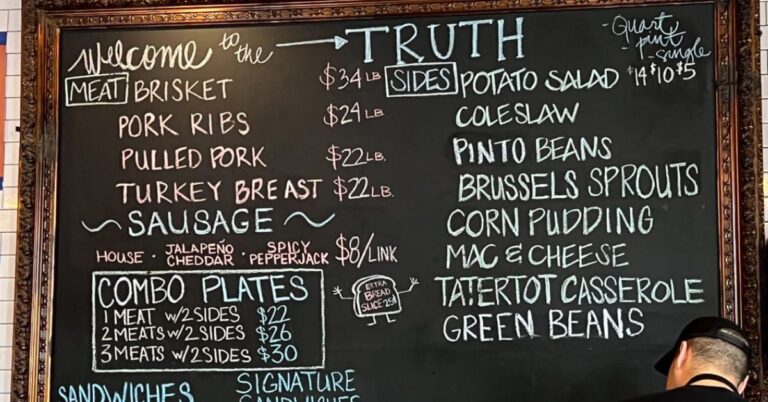 Welcome to the → TRUTH
MEAT
BRISKET $34 LB
PORK RIBS $24 LB
PULLED PORK $22 LB.
TURKEY BREAST $22 LB.
~ SAUSAGE ~
HOUSE · JALAPEÑO CHEDDAR · SPICY PEPPERJACK $8/LINK
COMBO PLATES
1 MEAT W/2 SIDES $22
2 MEATS W/2 SIDES $26
3 MEATS W/2 SIDES $30
EXTRA
BREAD
SLICE 25¢
SANDWICHES
SIGNATURE
SANDWICHES
- Quart
- pint
- single
$14 $10 $5
SIDES
POTATO SALAD
COLESLAW
PINTO BEANS
BRUSSELS SPROUTS
CORN PUDDING
MAC & CHEESE
TATERTOT CASSEROLE
GREEN BEANS